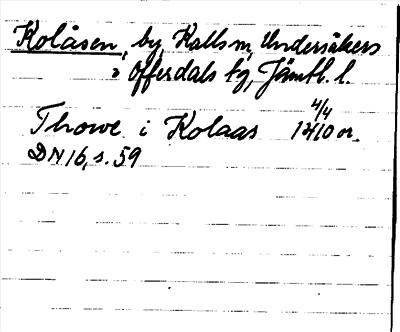 Kolåsen, by, Kalls sn, Undersåkers
o Offerdals tg, Jämtl. l.
4/4
Thowe i Kolaas 1410 or.
DN 16, s. 59